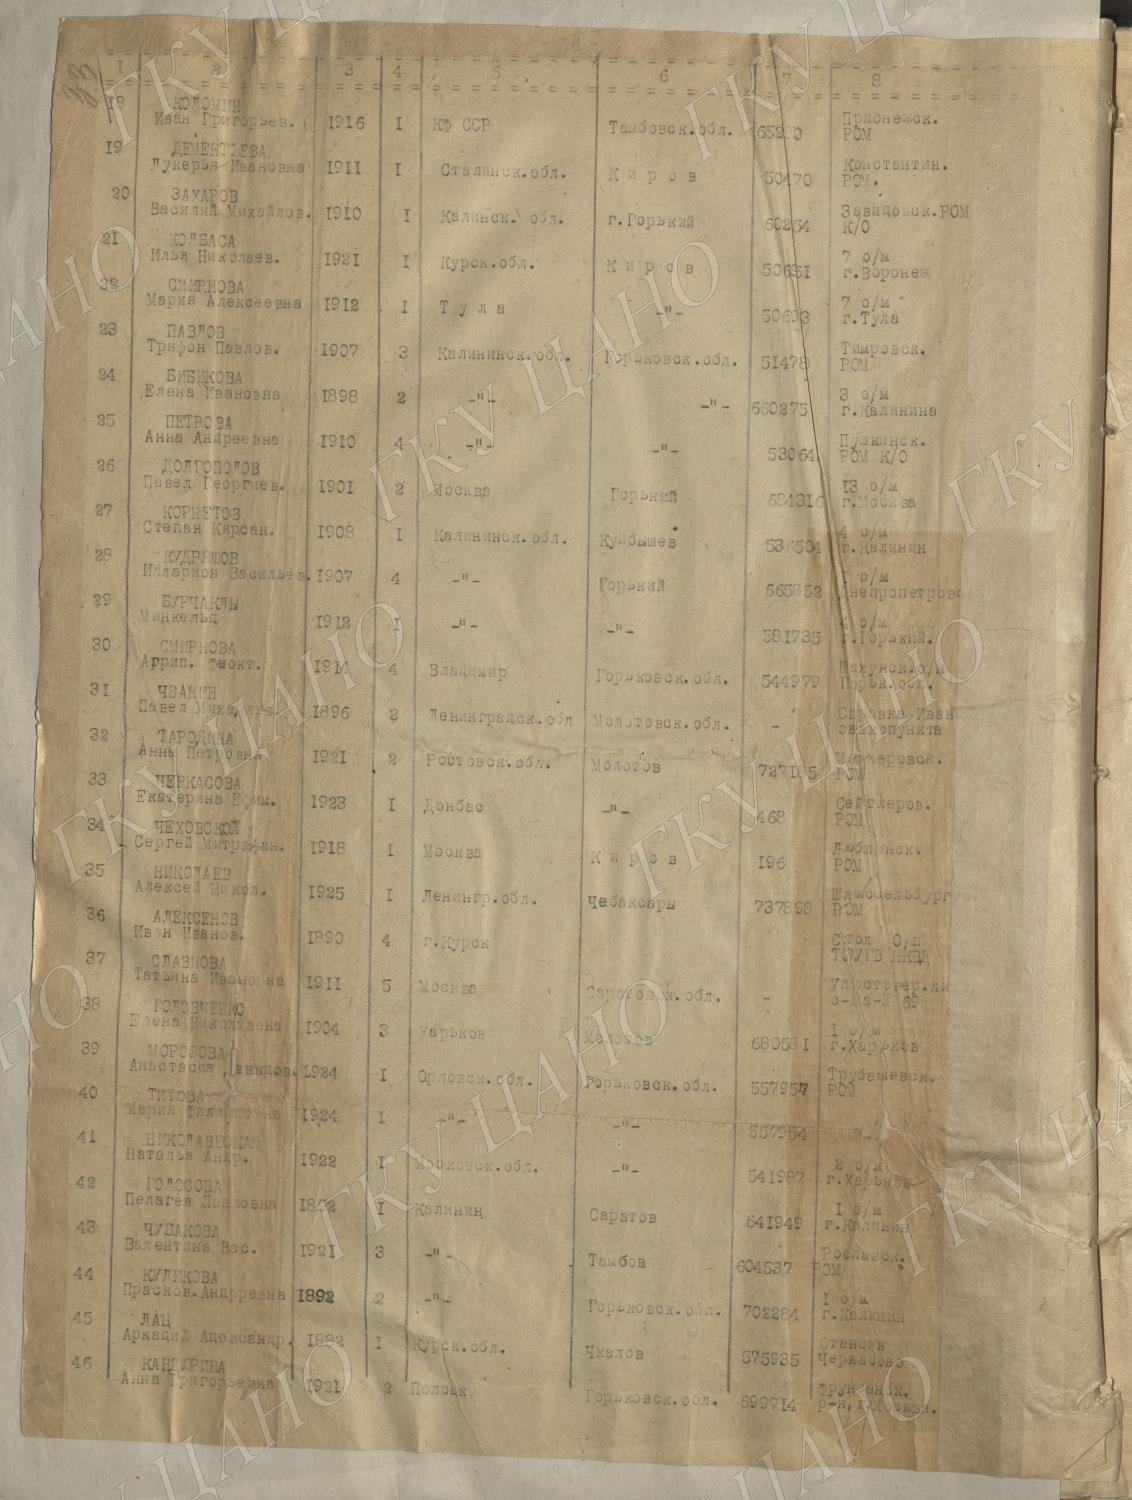 1 2 3 4 5 6 7 8
18 КОЛОМИН
Иван Григорьев. 1916 1 КФ ССР Тамбовск.обл. Прионежск.
РОМ
19 ДЕМЕНТЬЕВА
Лукерья Ивановна 1911 1 Сталинск.обл. Киров 50470 Константин.
РОМ.
20 ЗАХАРОВ
Василий Михайлов. 1910 1 Калинск. обл. г.Горький 60264 Завидовск.РОМ
К/О
21 КОЛБАСА
Илья Николаев. 1921 1 Курск.обл. Киров 50631 7 о/м
г.Воронеж
22 СМИРНОВА
Мария Алексеевна 1912 1 Тула -"- 50693 7 о/м
г.Тула
23 ПАВЛОВ
Трифон Павлов. 1907 3 Калининск.обл. Горьковск.обл. 51478 Тимровск.
РОМ
24 БИБИКОВА
Елена Ивановна 1898 2 -"- -"- 660275 3 о/м
г.Калинина
25 ПЕТРОВА
Анна Андреевна 1910 4 -"- -"- 53064 Пушкинск.
РОМ К/О
26 ДОЛГОПОЛОВ
Павел Георгиев. 1901 2 Москва Горький 684316 13 о/м
г.Москва
27 КОРНЕТОВ
Степан Кирсан. 1908 1 Калининск.обл. Куйбышев 536504 4 о/м
г.Калинин
28 КУДРЯШОВ
Илларион Васильев. 1907 4 -"- Горький 665852 1 о/м
Днепропетровск
29 БУРЧАКЛЫ
Минкельц 1912 1 -"- -"- 581735 4 о/м
г.Горький.
30 СМИРНОВА
Агрип. Феокт. 1914 4 Владимир Горьковск.обл. 544979 Шахунск.о/м
Горьк.обл.
31 ЧВАМИН
Павел 1896 2 Ленинградск.обл Молотовск.обл. - Справка Иван
эвакопункта
32 ТАРОДИНА
Анна Петровна 1921 2 Ростовск.обл. Молотов 727185
РОМ
33 ЧЕРКАСОВА
Екатерина Ефим. 1923 1 Донбас -"- 468 Сейтлеров.
РОМ
34 ЧЕХОВСКОЙ
Сергей Митрофан. 1918 1 Москва Киров 196 Люблинск.
РОМ
35 НИКОЛАЕВ
Алексей Никол. 1925 1 Ленингр.обл. Чебаксары 737898 Шлиссельбургск.
РОМ
36 АЛЕКСЕНОВ
Иван Иванов. 1890 4 г.Курск Стол О/п
НКВД
37 СЛАВНОВА
Татьяна Ивановна 1911 5 Москва Саратовск.обл. - Удостовер.личн.
69
38 ГОЛОВЧЕНКО
Елена Николаевна 1904 3 Харьков Молотов 680581 1 о/м
г.Харьков
39 МОРОЗОВА
Анастасия Давыдов. 1924 1 Орловск.обл. Горьковск.обл. 557957 Трубчевск.
РОМ
40 ТИТОВА
Мария Филипповна 1924 1 -"- -"- 557954 -"-
41 НИКОЛАВЕСКАЯ
Наталья Андр. 1922 1 Московск.обл. -"- 541987 2 о/м
г.Харьков
42 ГОЛОСОВА
Пелагея Павловна 1892 1 Калинин Саратов 641949 1 о/м
г.Калинин
43 ЧУБАКОВА
Валентина Вас. 1921 3 -"- Тамбов 604537 Рославск.
РОМ
44 КУЛИКОВА
Прасков.Андрревна 1892 2 -"- Горьковск.обл. 702284 1 о/м
г.Калинин
45 ЛАЦ
Аркадий Александр. 1882 1 Курск.обл. Чкалов 575935 Станция
Черкасово
46
Анна Григорьевна 1921 2 Полоцк Горьковск.обл. 699714 Фрунзенск.
р-н, г.Москва.
ГКУ ЦАНО